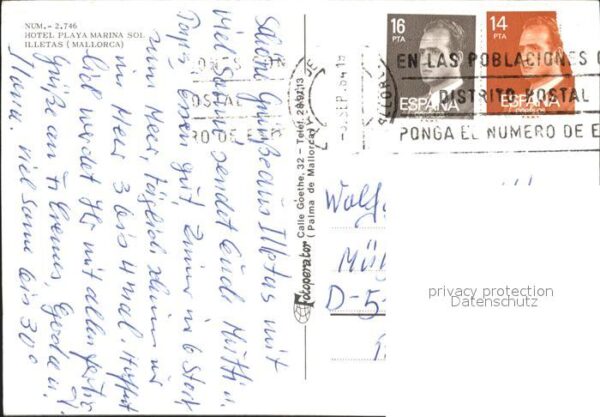 NUM. - 2.746
HOTEL PLAYA MARINA SOL
ILLETAS (MALLORCA)
Schöne Grüße aus Illetas mit
viel Sonne, sendet Euch Mutti u.
Papa, Essen gut, Zimmer im 6 Stock
zum Meer, täglich schwimmen wir
im Meer 3 bis 4 mal. Hoffentlich
werdet Ihr mit allem fertig
Grüße an Gerda u.
viel Sonne bis 30°
Fotoperator
Calle Goethe, 32 - Teléf. 28 92 13
(Palma de Mallorca)
16
PTA
ESPAÑA
CORREOS
14
PTA
ESPAÑA
CORREOS
SEP. 84 19
EN LAS POBLACIONES C
DISTRITO POSTAL
PONGA EL NUMERO DE E
Wolf
Mün
D-5
privacy protection
Datenschutz